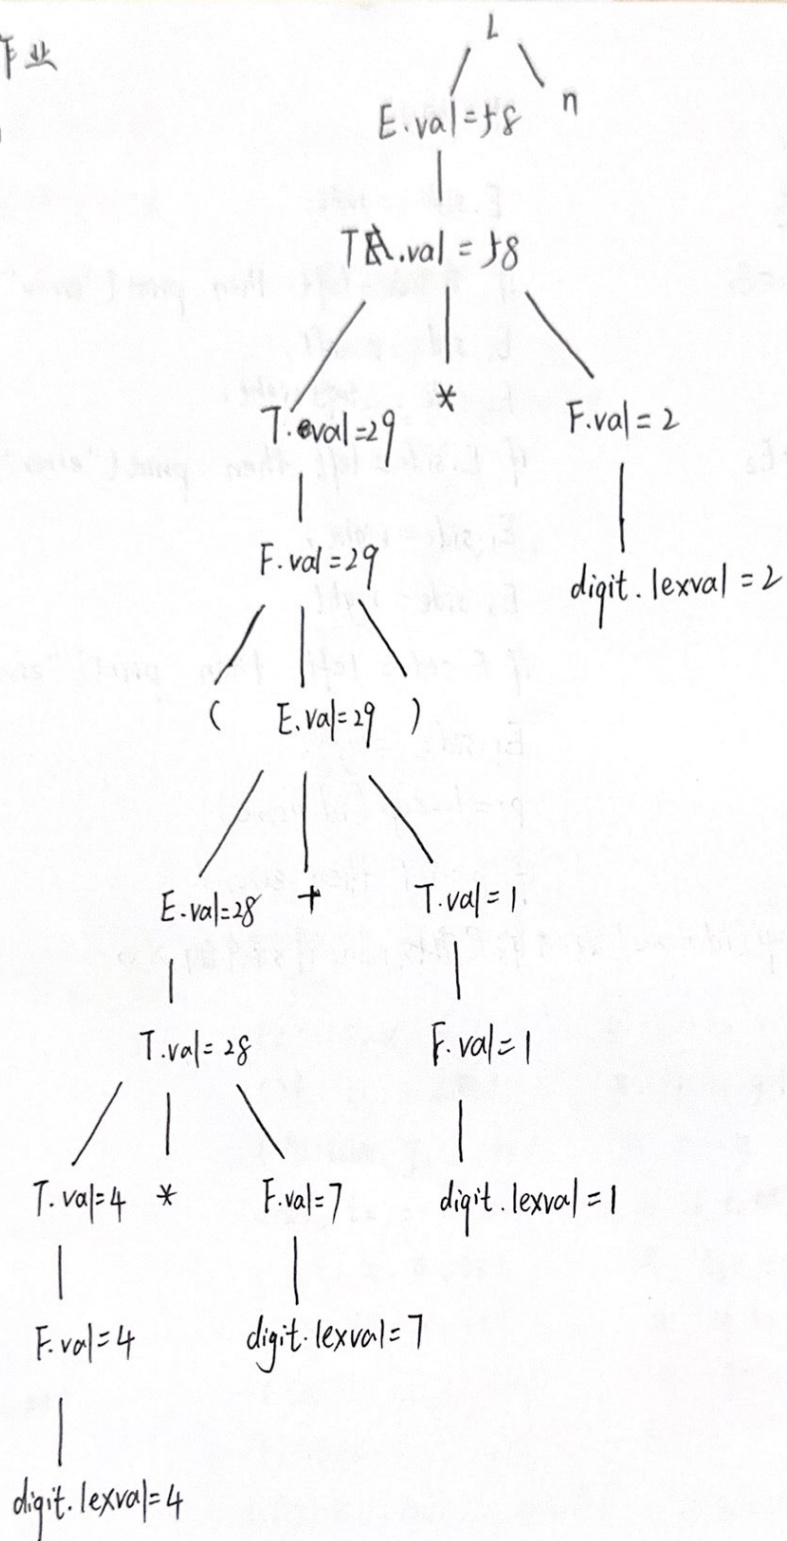 作业
L
E.val=58 n
T.val=58
T.val=29 * F.val=2
F.val=29 digit.lexval=2
( E.val=29 )
E.val=28 + T.val=1
T.val=28 F.val=1
T.val=4 * F.val=7 digit.lexval=1
F.val=4 digit.lexval=7
digit.lexval=4